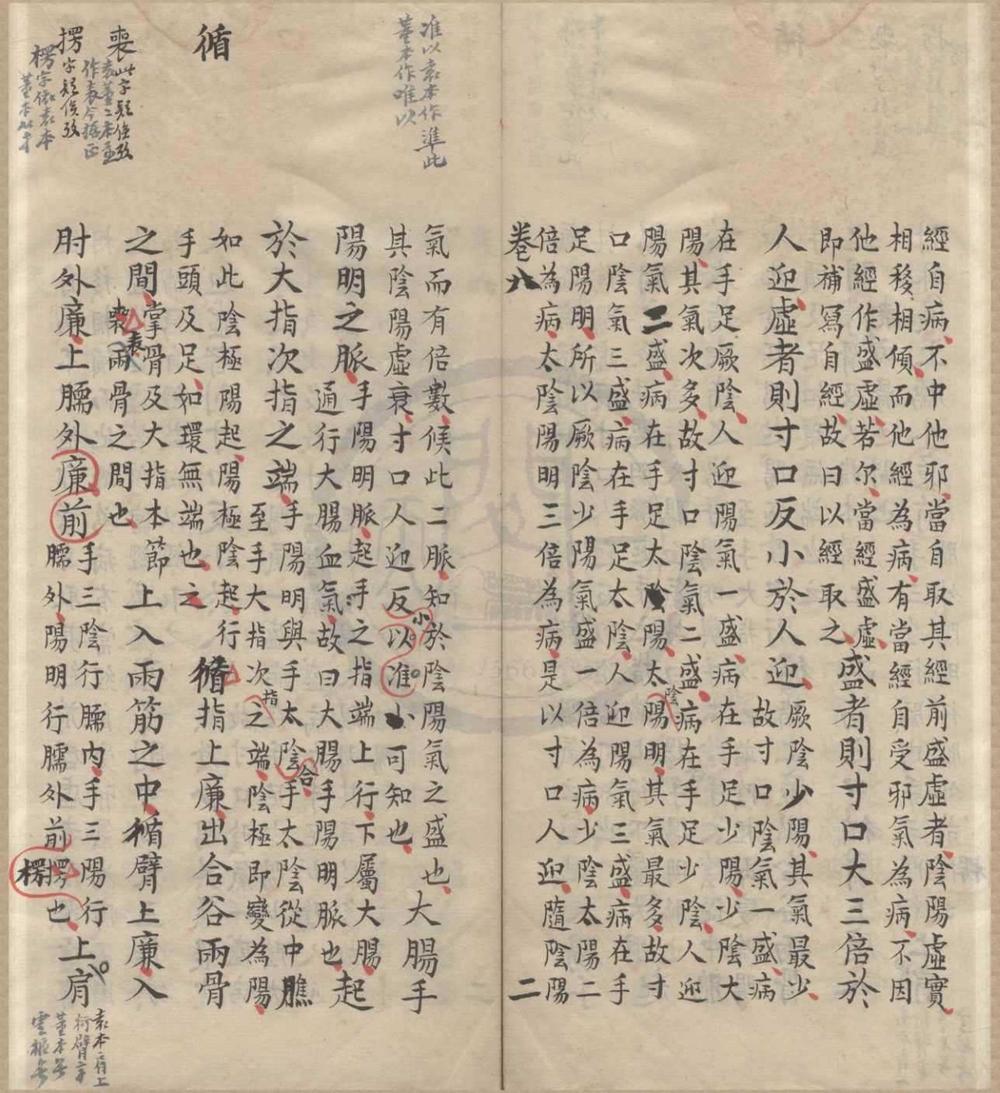 經自病不中他邪當自取其經前盛虛者陰陽虛實
相移相傾而他經為病有當經自受邪氣為病不因
他經作盛虛若尔當經盛虛
即補寫自經故曰以經取之
盛者則寸口大三倍於
人迎虛者則寸口反小於人迎
厥陰少陽其氣最少
故寸口陰氣一盛病
在手足厥陰人迎陽氣一盛病在手足少陽少陰大
陽其氣次多故寸口陰氣二盛病在手足少陰人迎
陽氣二盛病在手足太陽太陰陽明其氣最多故寸
口陰氣三盛病在手足太陰人迎陽氣三盛病在手
足陽明所以厥陰少陽氣盛一倍為病少陰太陽二
倍為病太陰陽明三倍為病是以寸口人迎隨陰陽
卷八
二
准以袁本作準此
董本作唯以
氣而有倍數候此二脈知於陰陽氣之盛也
其陰陽虛衰寸口人迎反小以准可知也
大腸手
陽明之脈
手陽明脈起手之指端上行下屬大腸
通行大腸血氣故曰大腸手陽明脈也
起
於大指次指之端
手陽明與手太陰合手太陰從中膲
至手大指次指之端陰極即變為陽
如此陰極陽起陽極陰起行
手頭及足如環無端也之
循指上廉出合谷兩骨
循
之間
掌骨及大指本節
表兩骨之間也
上入兩筋之中循臂上廉入
喪此字疑誤攷
袁董二本並
作表今據正
肘外廉上臑外廉前
手三陰行臑內手三陽行
臑外陽明行臑外前楞也
上肩
楞字依袁本
袁本肩上
衍臂字
董本無